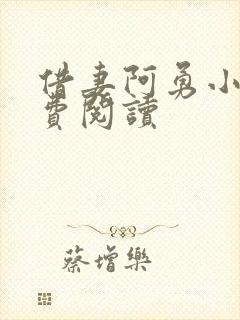 借妻阿勇小
費閱讀
蔡增樂